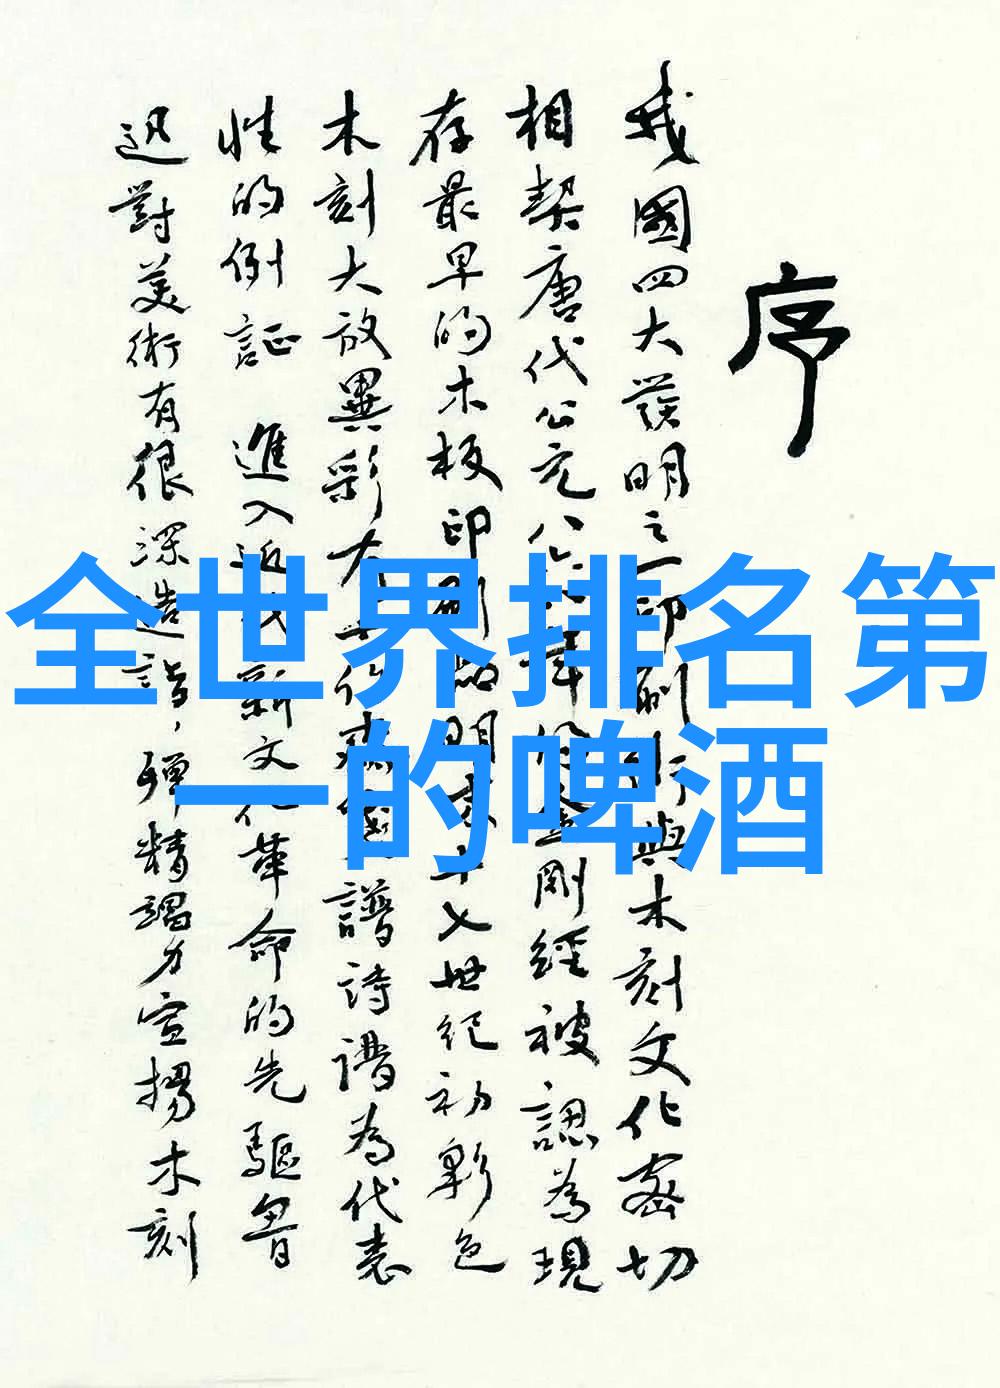 序
我國四大發明之一印刷術與木刻文化密切
相契唐代公元八六八年份金剛經被認為現
存最早的木板印刷品明末十七世紀初彩色
木刻大放異彩有十竹齋箋譜詩譜為代表
性的例証 進入近代新文化革命的先驅魯
迅對美術有很深造詣，殫精竭力宣揚木刻
全世界排名第
一的啤酒